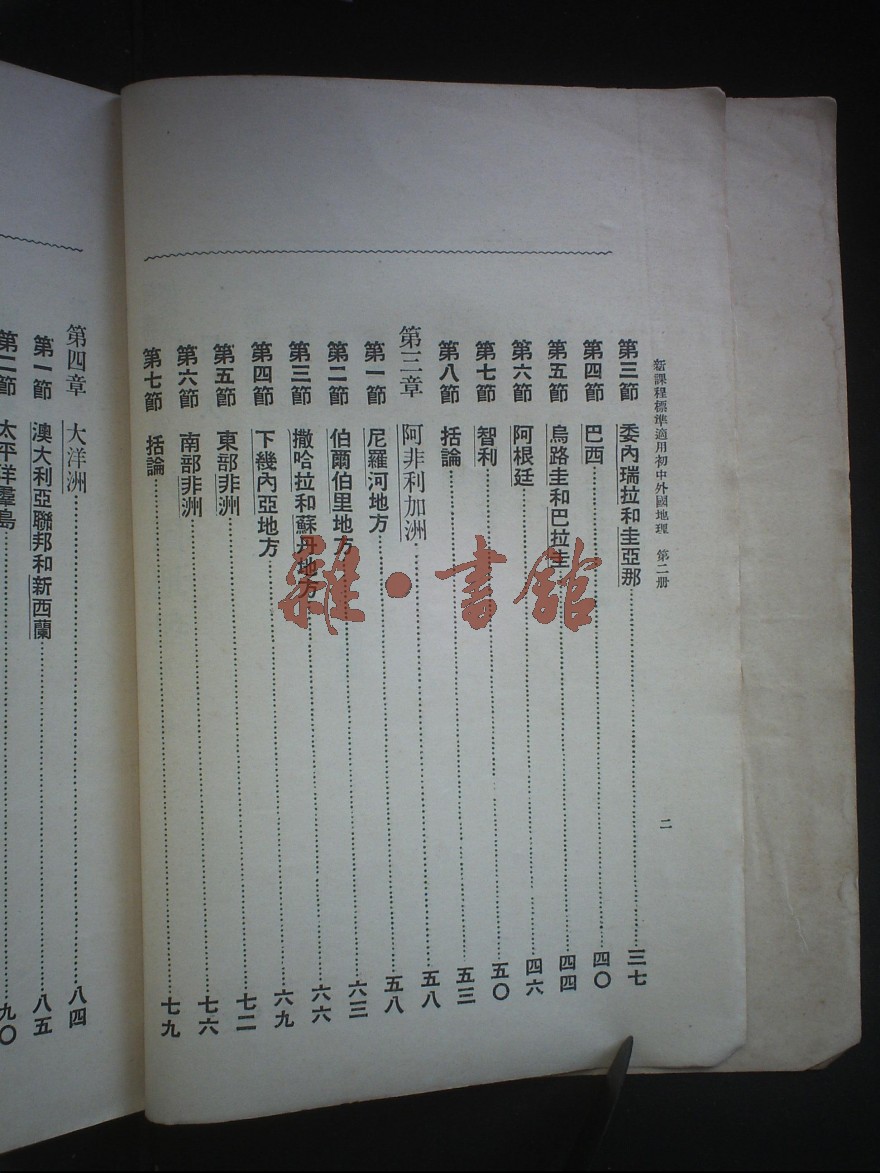 新課程標準適用初中外國地理 第二册 二
第三節 委內瑞拉和圭亞那 三七
第四節 巴西 四〇
第五節 烏路圭和巴拉圭 四四
第六節 阿根廷 四六
第七節 智利 五〇
第八節 括論 五三
第三章 阿非利加洲 五八
第一節 尼羅河地方 五八
第二節 伯爾伯里地方 六三
第三節 撒哈拉和蘇丹地方 六六
第四節 下幾內亞地方 六九
第五節 東部非洲 七二
第六節 南部非洲 七六
第七節 括論 七九
第四章 大洋洲 八四
第一節 澳大利亞聯邦和新西蘭 八五
第二節 太平洋羣島 九〇
雜·書館